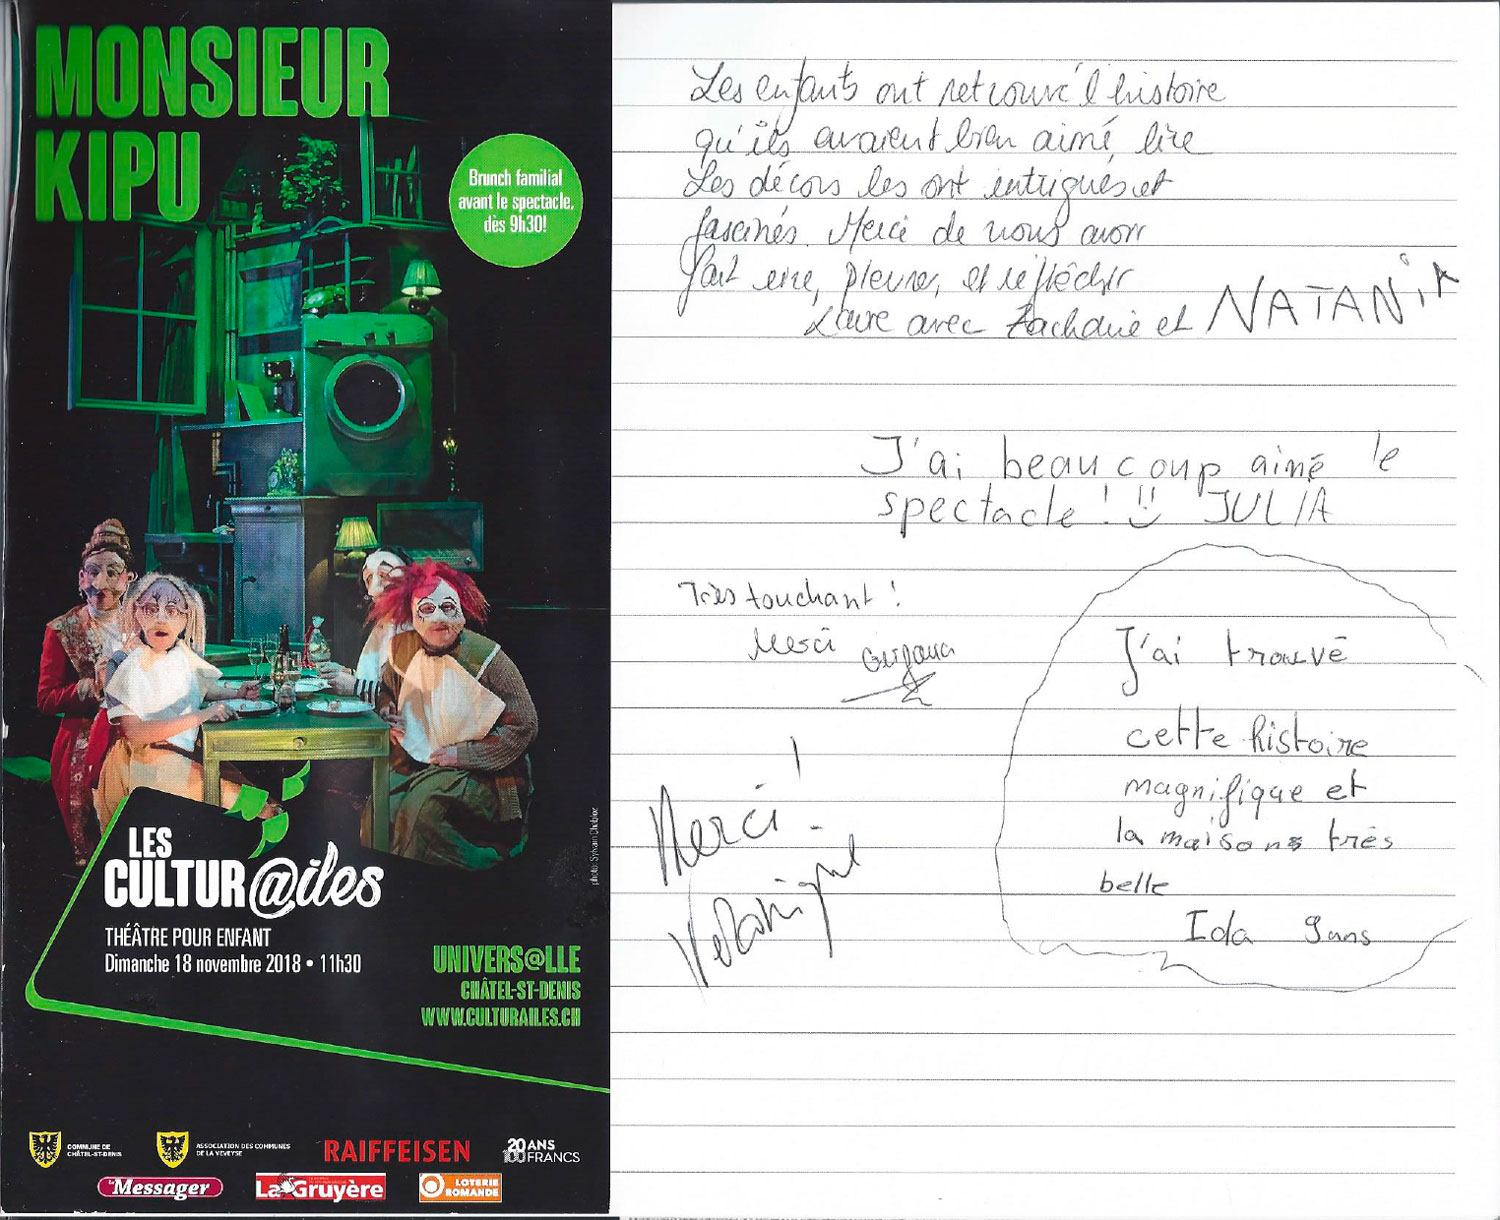 MONSIEUR
KIPU
Brunch familial
avant le spectacle,
dès 9h30!
photo: Sylvain Chabloz
LES
CULTUR@iles
THÉÂTRE POUR ENFANT
Dimanche 18 novembre 2018 • 11h30
UNIVERS@LLE
CHÂTEL-ST-DENIS
WWW.CULTURAILES.CH
COMMUNE DE
CHÂTEL-ST-DENIS
ASSOCIATION DES COMMUNES
DE LA VEVEYSE
RAIFFEISEN
20 ANS
100 FRANCS
Le Messager
La Gruyère
LOTERIE
ROMANDE
Les enfants ont retrouvé l'histoire
qu'ils avaient bien aimé lire
Les décors les ont intrigués et
fascinés. Merci de nous avoir
fait rire, pleurer, et réfléchir
Laure avec Zacharie et NATANIA
J'ai beaucoup aimé le
spectacle ! JULIA
Très touchant !
Merci
Merci !
Véronique
J'ai trouvé
cette histoire
magnifique et
la maisons très
belle
Ida 9ans